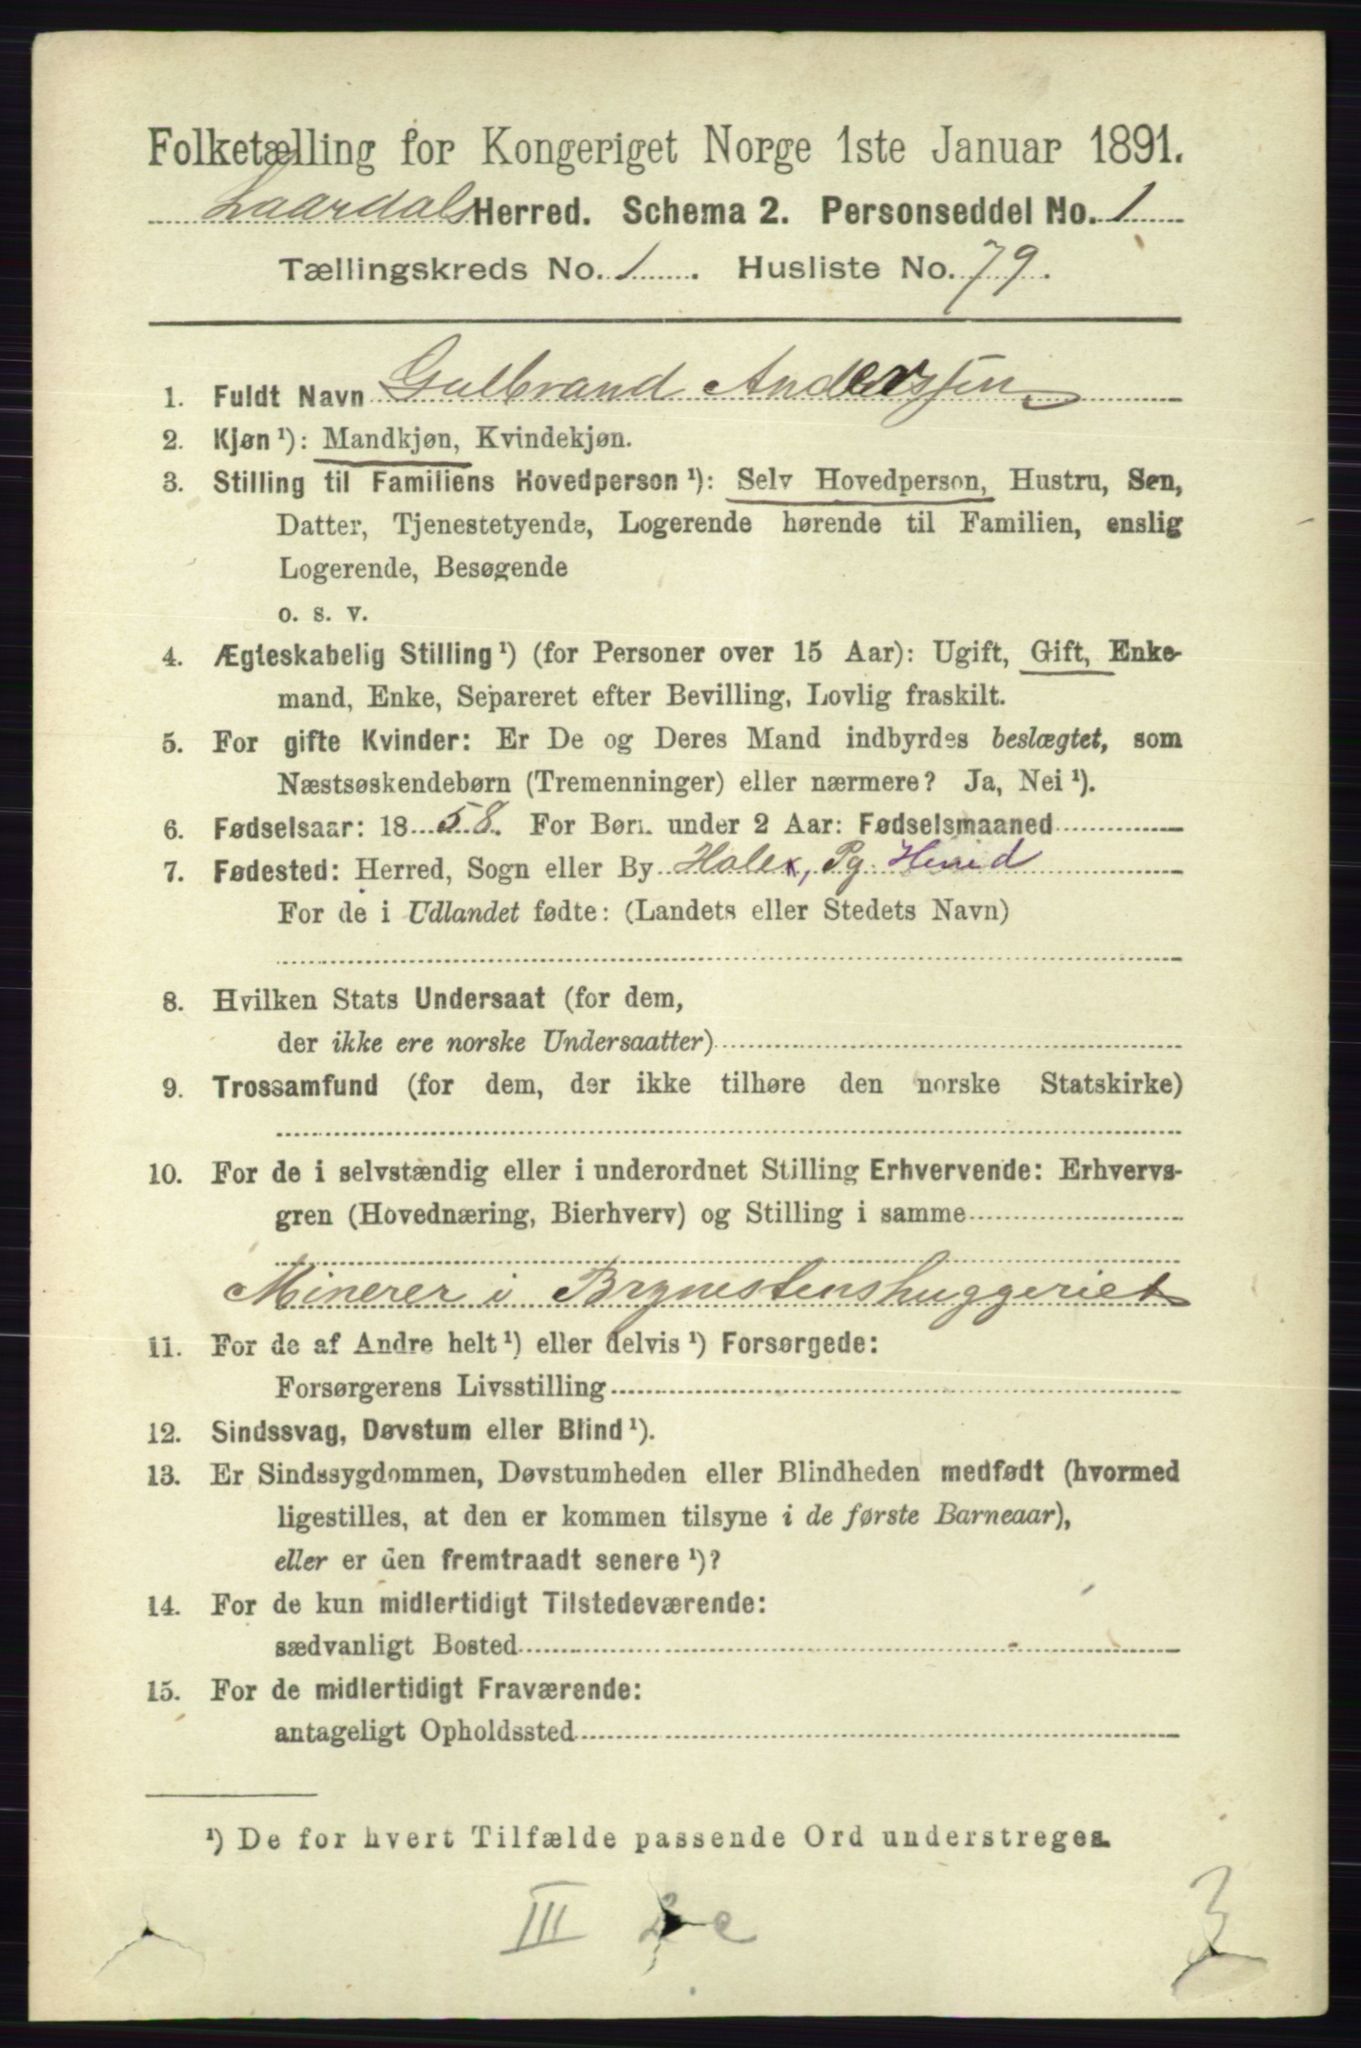 Folketælling for Kongeriget Norge 1ste Januar 1891.
Laardals Herred. Schema 2. Personseddel No. 1
Tællingskreds No. 1. Husliste No. 79.
1. Fuldt Navn Gulbrand Anderssen
2. Kjøn ¹): Mandkjøn, Kvindekjøn.
3. Stilling til Familiens Hovedperson ¹): Selv Hovedperson, Hustru, Søn,
Datter, Tjenestetyende, Logerende hørende til Familien, enslig
Logerende, Besøgende
o. s. v.
4. Ægteskabelig Stilling ¹) (for Personer over 15 Aar): Ugift, Gift, Enke-
mand, Enke, Separeret efter Bevilling, Lovlig fraskilt.
5. For gifte Kvinder: Er De og Deres Mand indbyrdes beslægtet, som
Næstsøskendebørn (Tremenninger) eller nærmere? Ja, Nei ¹).
6. Fødselsaar: 1858. For Børn under 2 Aar: Fødselsmaaned
7. Fødested: Herred, Sogn eller By Hole, Pg.
For de i Udlandet fødte: (Landets eller Stedets Navn)
8. Hvilken Stats Undersaat (for dem,
der ikke ere norske Undersaatter)
9. Trossamfund (for dem, der ikke tilhøre den norske Statskirke)
10. For de i selvstændig eller i underordnet Stilling Erhvervende: Erhvervs-
gren (Hovednæring, Bierhverv) og Stilling i samme
Minerer i Brynestenshuggeriet
11. For de af Andre helt ¹) eller delvis ¹) Forsørgede:
Forsørgerens Livsstilling
12. Sindssvag, Døvstum eller Blind ¹).
13. Er Sindssygdommen, Døvstumheden eller Blindheden medfødt (hvormed
ligestilles, at den er kommen tilsyne i de første Barneaar),
eller er den fremtraadt senere ¹)?
14. For de kun midlertidigt Tilstedeværende:
sædvanligt Bosted
15. For de midlertidigt Fraværende:
antageligt Opholdssted
¹) De for hvert Tilfælde passende Ord understreges.
III 2 c 3